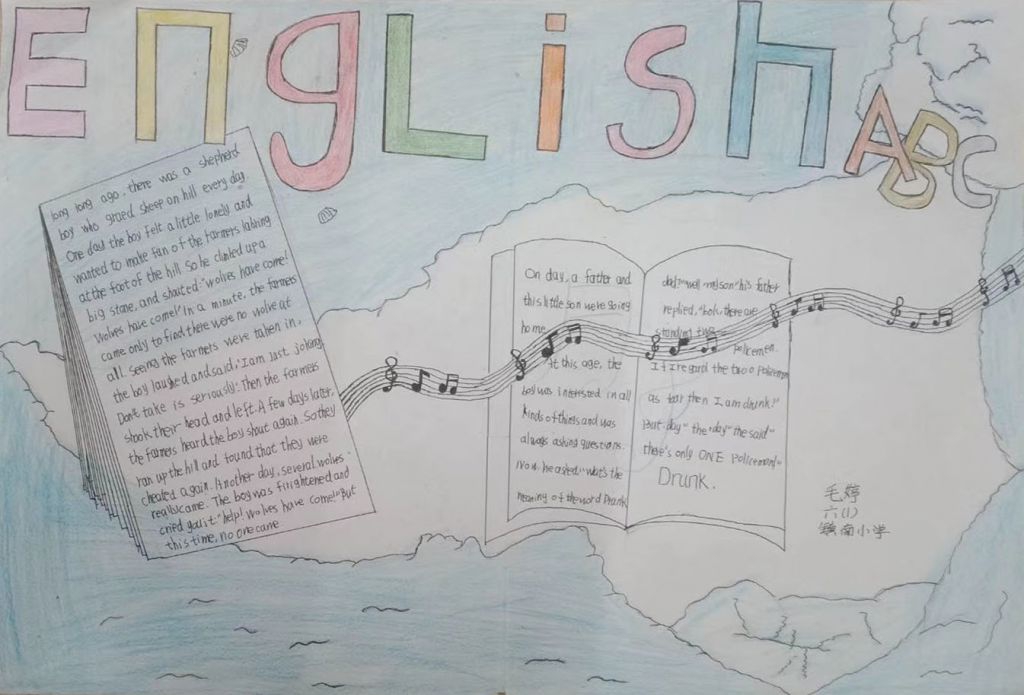 EngLish
ABC
long long ago, there was a shepherd
boy who graed sheep on hill every day.
One day the boy felt a little lonely and
wanted to make fan of the farmers labking
at the foot of the hill. So he climbed up a
big stone, and shouted:"wolves have come!
Wolves have come!" In a minute, the farmers
came only to find there were no wolve at
all. Seeing the farmers we're taken in,
the boy laughed and said,"I am just joking
Don't take is seriously." Then the farmers
shook their head and left. A few days later,
the farmers heard the boy shout again. So they
ran up the hill and found that they were
cheated again. Another day, several wolves
really came. The boy was firightened and
cried out "help! Wolves have come!" But
this time, no one came
On day, a father and
this little son were going
home.
At this age, the
boy was interested in all
kinds of things and was
always asking questions.
Now, he asked "what's the
meaning of the word Drunk
dad?" "well my son" his father
replied, "look, there are
standing two
policemen.
If I regard the two o policemen
as four then I am drunk!"
"But day" the "day" the said"
"there's only ONE policemen"
Drunk.
毛婷
六(1)
镇南小学